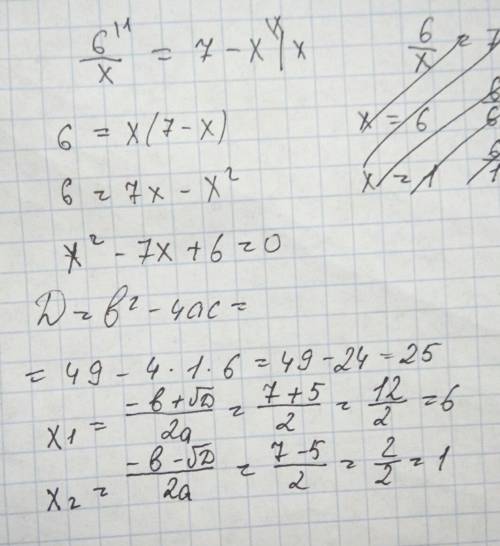 6 \1
/x = 7 - x \x
6 = x(7 - x)
6 = 7x - x²
x² - 7x + 6 = 0
D = b² - 4ac =
= 49 - 4 · 1 · 6 = 49 - 24 = 25
x1 = (-b + √D)/2a = (7 + 5)/2 = 12/2 = 6
x2 = (-b - √D)/2a = (7 - 5)/2 = 2/2 = 1
6/x = 7
x = 6
6/6
x = 1
6/1